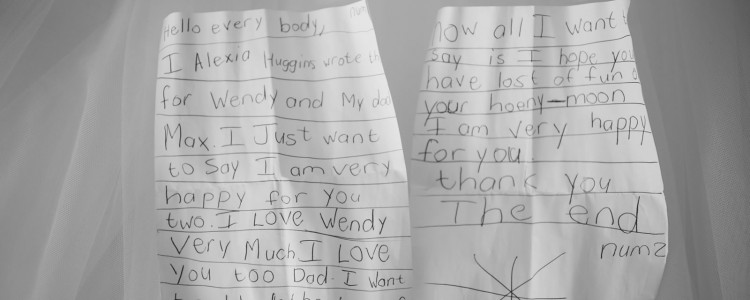 Hello every body,
I Alexia Huggins wrote
for Wendy and My
Max. I Just want
to say I am very
happy for you
two. I LOVE Wendy
Very Much I LOVE
you too Dad. I want
now all I want
say is I hope you
have lost of fun
your hoony-moon
I am very happy
for you.
thank you
The end
num2